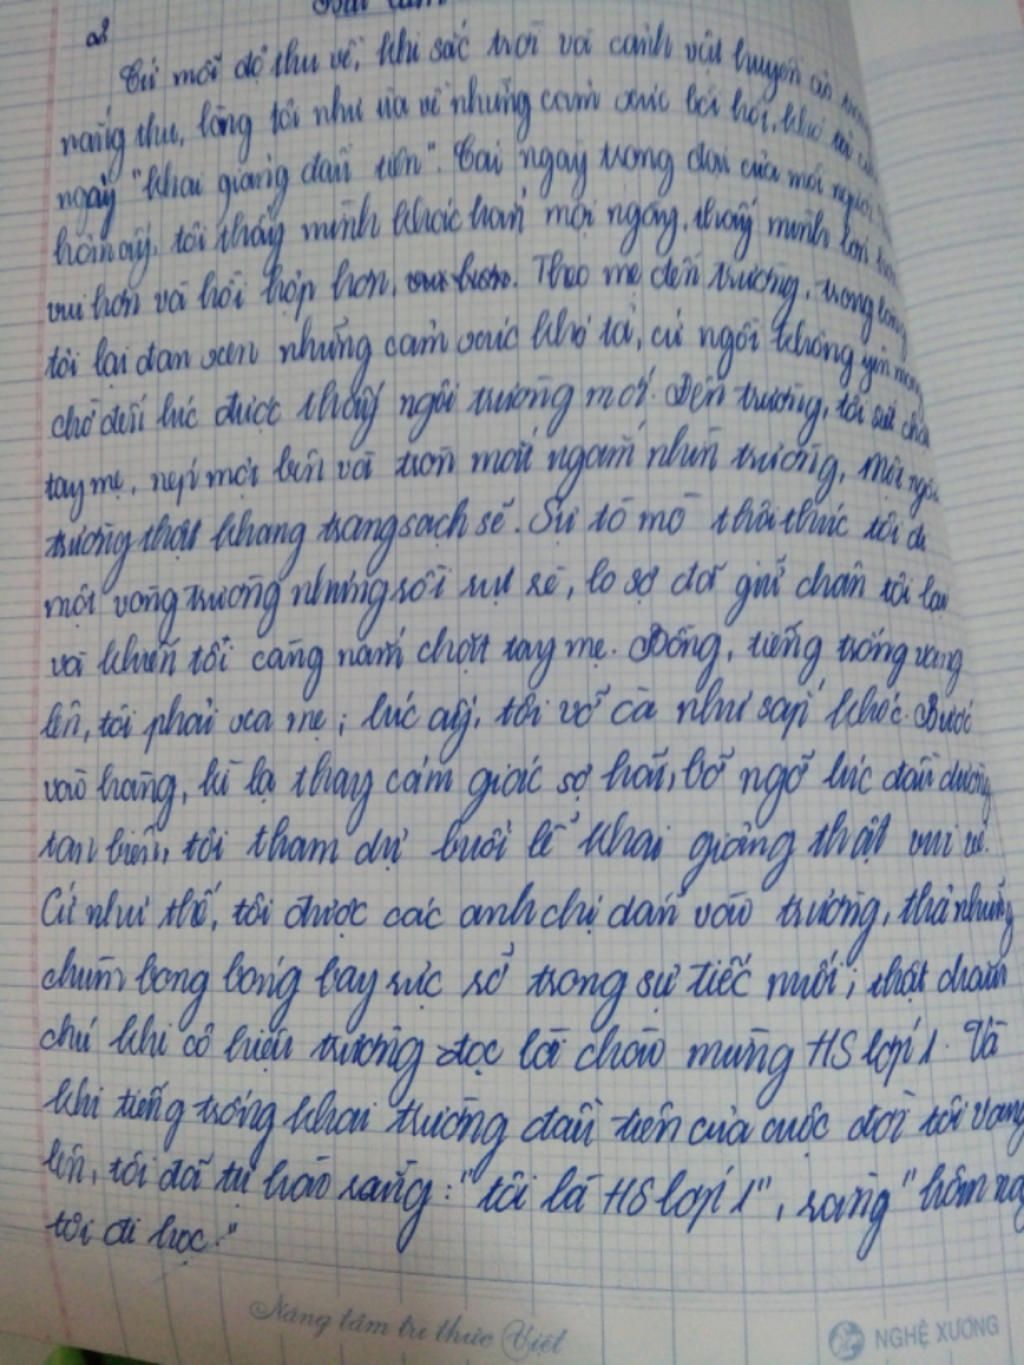 Bài làm
Cứ mỗi độ thu về, khi sắc trời và cảnh vật huyền ảo trong
nắng thu, lòng tôi như ùa về những cảm xúc bồi hồi, khó tả của
ngày "khai giảng đầu tiên". Cái ngày trọng đại của mỗi người
hôm ấy, tôi thấy mình khác hẳn mọi ngày, thấy mình lớn hơn
vui hơn và hồi hộp hơn. Theo mẹ đến trường, trong lòng
tôi lại đan xen những cảm xúc khó tả, cứ ngồi không yên mong
chờ đến lúc được thấy ngôi trường mới. Đến trường, tôi siết chặt
tay mẹ, nép một bên và tròn mắt ngắm nhìn trường, một ngôi
trường thật khang trang sạch sẽ. Sự tò mò thôi thúc tôi đi
một vòng trường nhưng rồi rụt rè, lo sợ đã giữ chân tôi lại
và khiến tôi càng nắm chặt tay mẹ. Bỗng, tiếng trống vang
lên, tôi phải xa mẹ; lúc ấy, tôi vỡ òa như sắp khóc. Bước
vào hàng, kì lạ thay cảm giác sợ hãi, bỡ ngỡ lúc đầu dường
tan biến, tôi tham dự buổi lễ khai giảng thật vui vẻ.
Cứ như thế, tôi được các anh chị dẫn vào trường, thả những
chùm bong bóng bay rực rỡ trong sự tiếc nuối; thật chăm
chú khi cô hiệu trưởng đọc lời chào mừng HS lớp 1. Và
khi tiếng trống khai trường đầu tiên của cuộc đời tôi vang
lên, tôi đã tự hào rằng: "tôi là HS lớp 1", rằng "hôm nay
tôi đi học."
Nâng tầm tri thức Việt
NGHỆ XƯƠNG